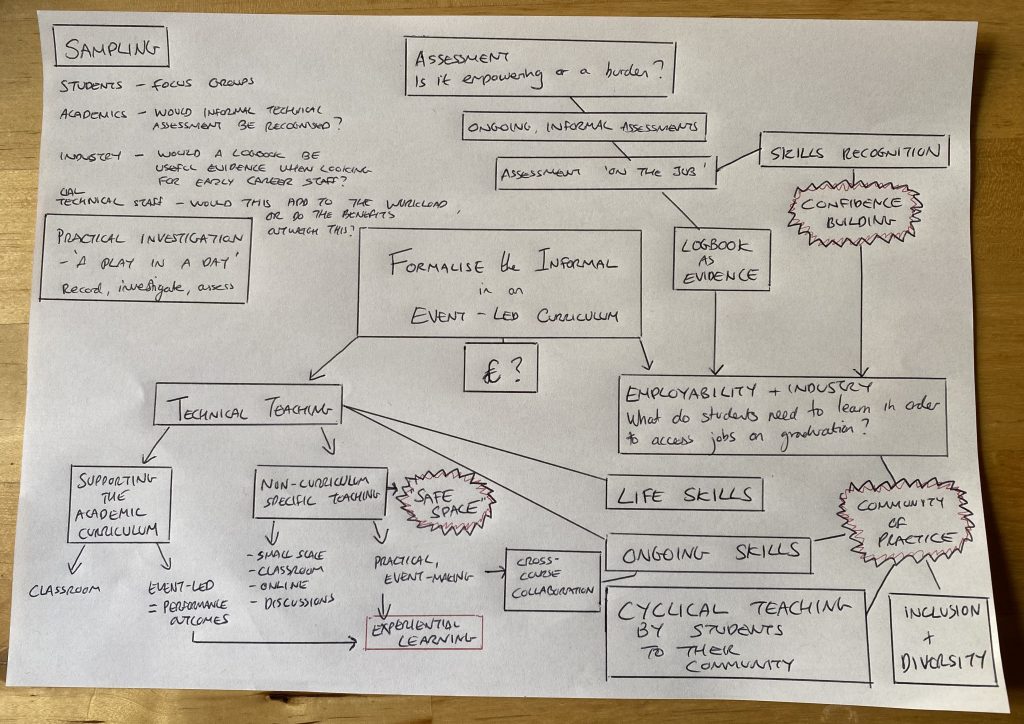 SAMPLING
STUDENTS - FOCUS GROUPS
ACADEMICS - WOULD INFORMAL TECHNICAL
ASSESSMENT BE RECOGNISED?
INDUSTRY - WOULD A LOGBOOK BE
USEFUL EVIDENCE WHEN LOOKING
FOR EARLY CAREER STAFF?
TECHNICAL STAFF - WOULD THIS ADD TO THE WORKLOAD,
OR DO THE BENEFITS
OUTWEIGH THIS?
PRACTICAL INVESTIGATION
- 'A PLAY IN A DAY'
Record, investigate, assess
ASSESSMENT
Is it empowering or a burden?
ONGOING, INFORMAL ASSESSMENTS
ASSESSMENT 'ON THE JOB'
SKILLS RECOGNITION
CONFIDENCE
BUILDING
LOGBOOK
AS
EVIDENCE
FORMALISE the INFORMAL
in an
EVENT-LED CURRICULUM
£?
EMPLOYABILITY + INDUSTRY
What do students need to learn in order
to access jobs on graduation?
TECHNICAL TEACHING
SUPPORTING
THE
ACADEMIC
CURRICULUM
CLASSROOM
EVENT-LED
= PERFORMANCE
OUTCOMES
NON-CURRICULUM
SPECIFIC TEACHING
- SMALL SCALE
- CLASSROOM
- ONLINE
- DISCUSSIONS
"SAFE
SPACE"
PRACTICAL,
EVENT-MAKING
EXPERIENTIAL
LEARNING
CROSS-
COURSE
COLLABORATION
LIFE SKILLS
ONGOING SKILLS
CYCLICAL TEACHING
BY STUDENTS
TO THEIR
COMMUNITY
COMMUNITY
OF
PRACTICE
INCLUSION
+
DIVERSITY